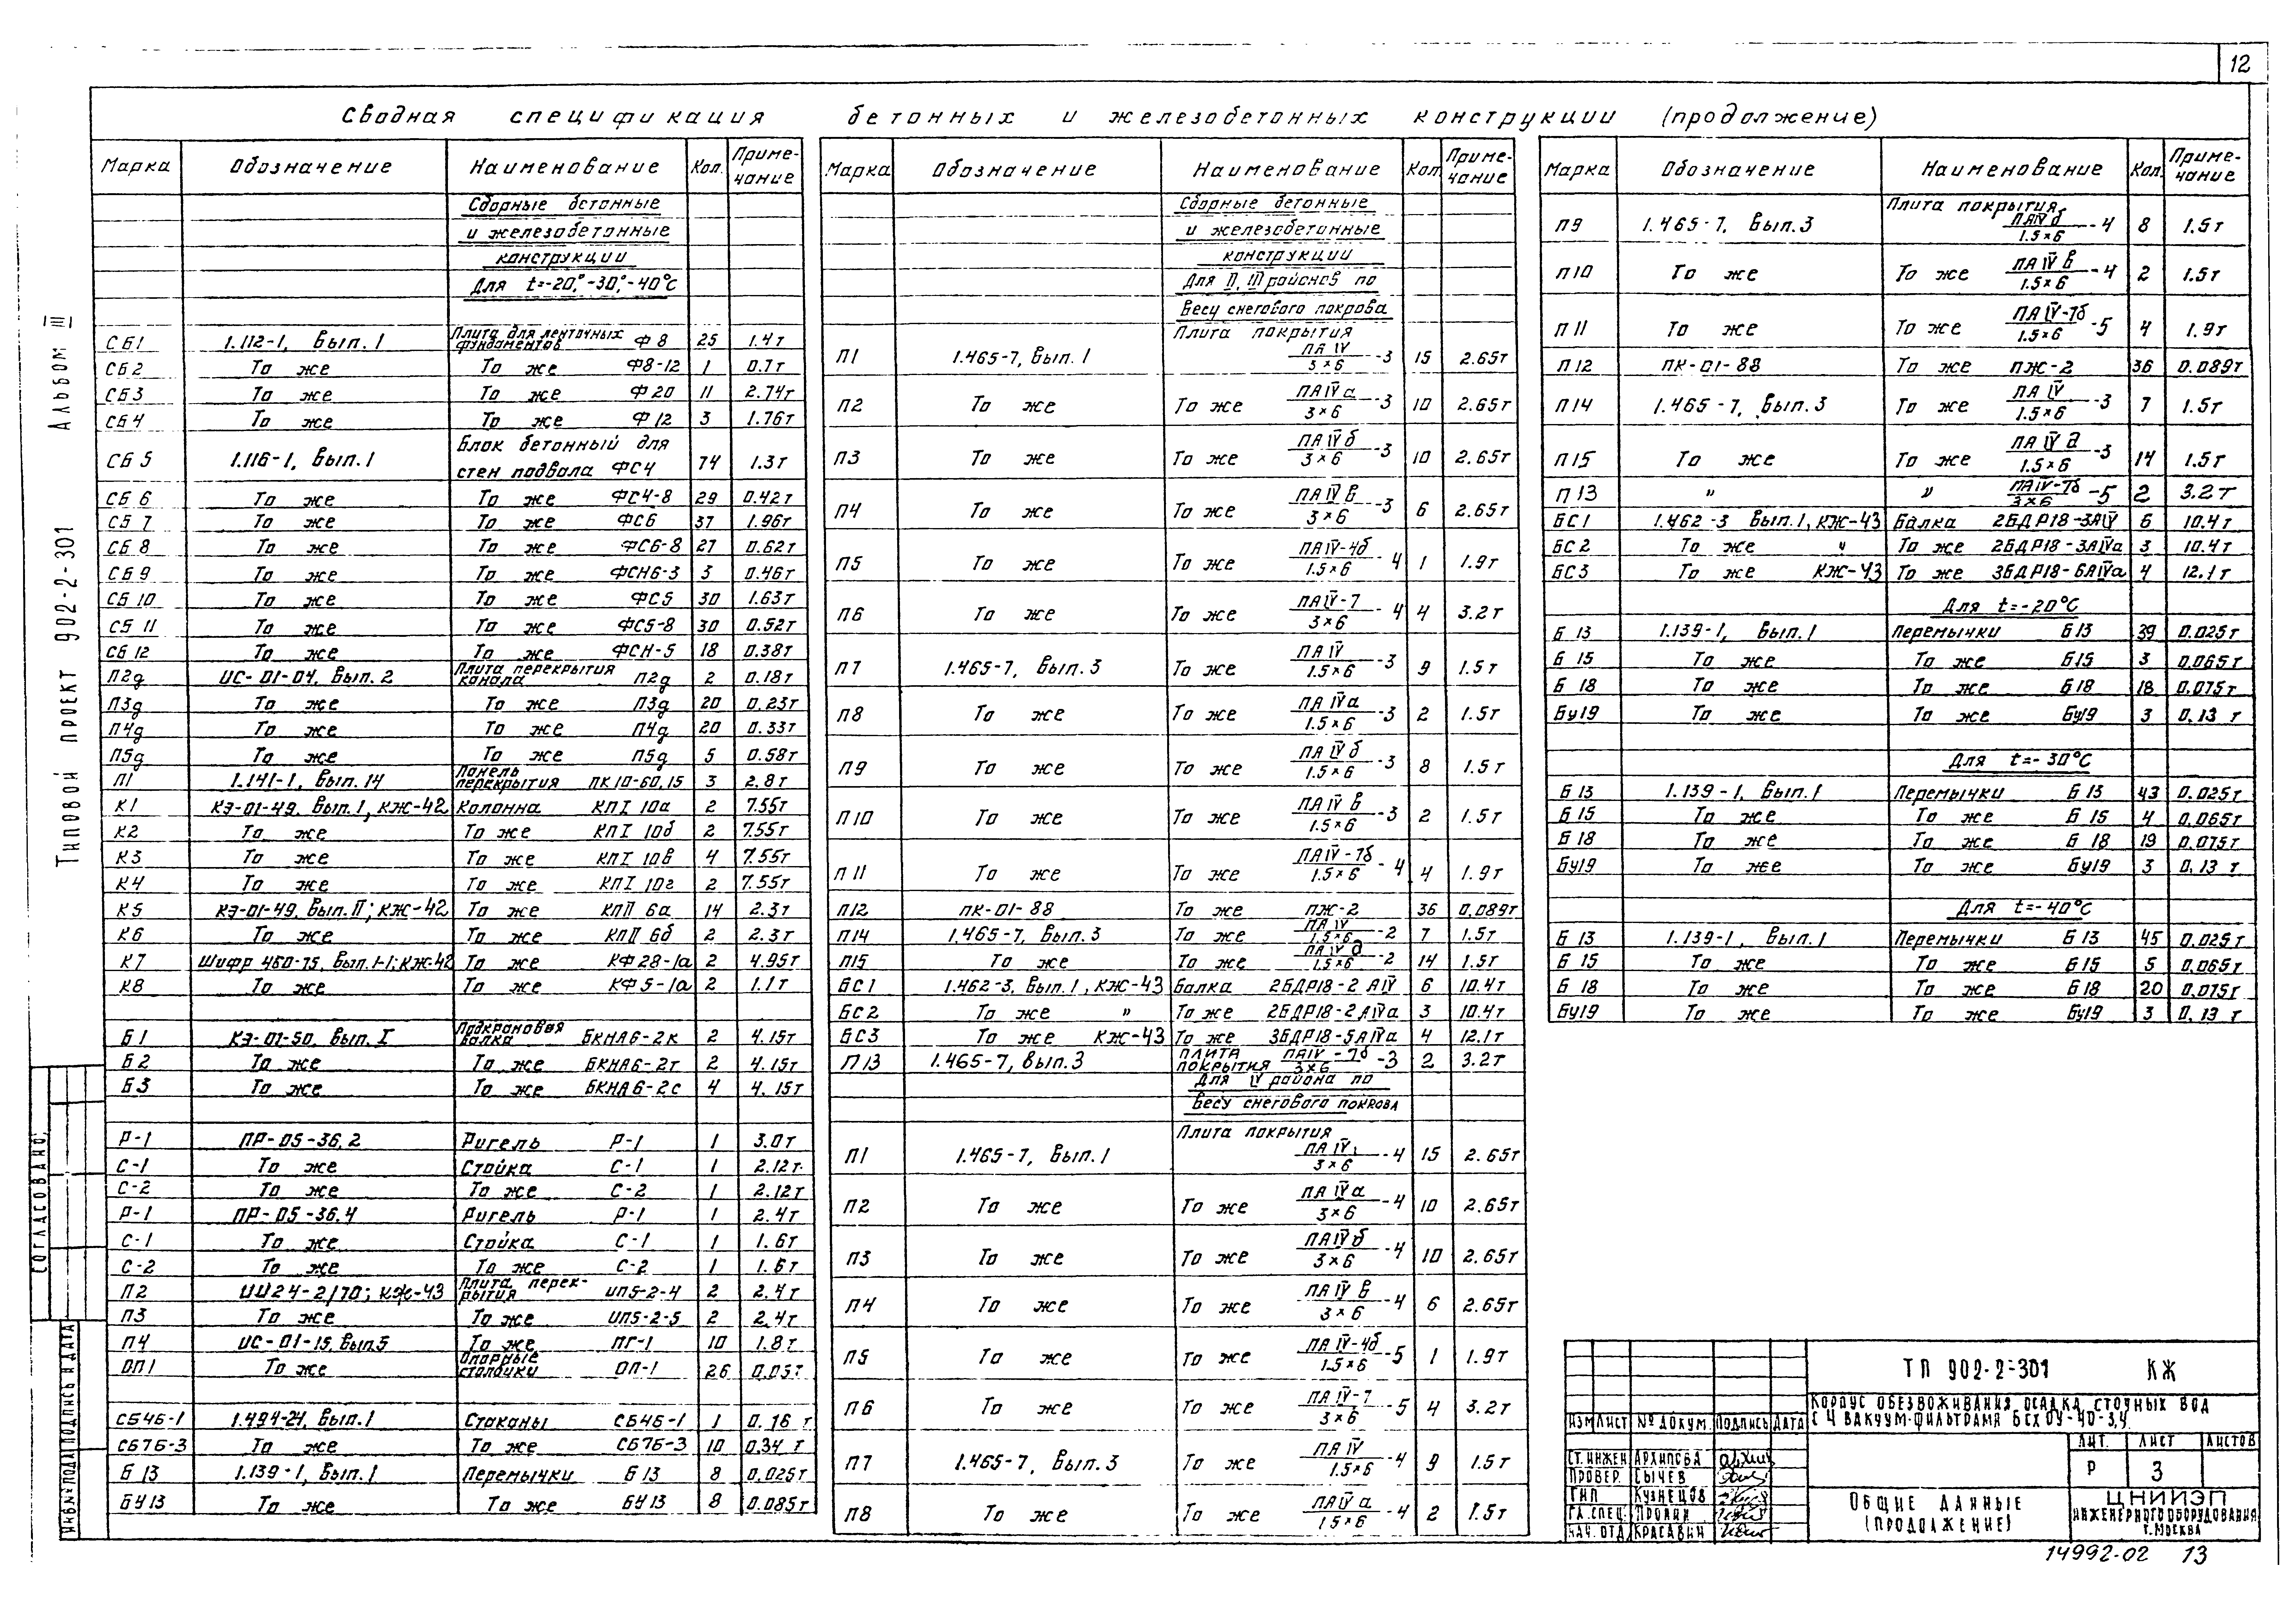 12
Сводная спецификация бетонных и железобетонных конструкции (продолжение)
Типовой проект 902-2-301 Альбом III
Марка Обозначение Наименование Кол. Приме-чание
Сборные бетонные
и железобетонные
конструкции
Для t=-20°,-30°,-40°С
СБ1 1.112-1, Вып.1 Плита для ленточных фундаментов Ф 8 25 1.4т
СБ2 То же То же Ф8-12 1 0.7т
СБ3 То же То же Ф20 11 2.74т
СБ4 То же То же Ф12 3 1.76т
СБ5 1.116-1, Вып.1 Блок бетонный для стен подвала ФС4 74 1.3т
СБ6 То же То же ФС4-8 29 0.42т
СБ7 То же То же ФС6 37 1.96т
СБ8 То же То же ФС6-8 27 0.62т
СБ9 То же То же ФСН6-3 3 0.46т
СБ10 То же То же ФС5 30 1.63т
СБ11 То же То же ФС5-8 30 0.52т
СБ12 То же То же ФСН-5 18 0.38т
П2g ИС-01-04, Вып.2 Плита перекрытия канала П2g 2 0.18т
П3g То же То же П3g 20 0.23т
П4g То же То же П4g 20 0.33т
П5g То же То же П5g 5 0.58т
П1 1.141-1, Вып.14 Панель перекрытия ПК10-60.15 3 2.8т
К1 КЭ-01-49, Вып.1, КЖ-42 Колонна КПI 10а 2 7.55т
К2 То же То же КПI 10б 2 7.55т
К3 То же То же КПI 10в 4 7.55т
К4 То же То же КПI 10г 2 7.55т
К5 КЭ-01-49, Вып.II; КЖ-42 То же КПII 6а 14 2.3т
К6 То же То же КПII 6б 2 2.3т
К7 Шифр 460-75, Вып.1-1; КЖ-42 То же КФ28-1а 2 4.95т
К8 То же То же КФ5-1а 2 1.1т
Б1 КЭ-01-50, Вып.I Подкрановая балка БКНА6-2к 2 4.15т
Б2 То же То же БКНА6-2т 2 4.15т
Б3 То же То же БКНА6-2с 4 4.15т
Р-1 ПР-05-36.2 Ригель Р-1 1 3.0т
С-1 То же Стойка С-1 1 2.12т
С-2 То же То же С-2 1 2.12т
Р-1 ПР-05-36.4 Ригель Р-1 1 2.4т
С-1 То же Стойка С-1 1 1.6т
С-2 То же То же С-2 1 1.6т
П2 ИИ24-2/70; КЖ-43 Плита перек-рытия ИП5-2-4 2 2.4т
П3 То же То же ИП5-2-5 2 2.4т
П4 ИС-01-15, Вып.5 То же ПГ-1 10 1.8т
ОП1 То же Опорные столбики ОП-1 26 0.05т
СБ4Б-1 1.494-24, Вып.1 Стаканы СБ4Б-1 1 0.16 т
СБ7Б-3 То же То же СБ7Б-3 10 0.34 т
Б 13 1.139-1, Вып.1 Перемычки Б 13 8 0.025т
БУ13 То же То же БУ13 8 0.085т
Марка Обозначение Наименование Кол Приме-чание
Сборные бетонные
и железобетонные
конструкции
Для II, III районов по
весу снегового покрова
П1 1.465-7, Вып.1 Плита покрытия ПАIV/3×6 -3 15 2.65т
П2 То же То же ПАIVа/3×6 -3 10 2.65т
П3 То же То же ПАIVб/3×6 -3 10 2.65т
П4 То же То же ПАIVв/3×6 -3 6 2.65т
П5 То же То же ПАIV-4б/1.5×6 -4 1 1.9т
П6 То же То же ПАIV-7/3×6 -4 4 3.2т
П7 1.465-7, Вып.3 То же ПАIV/1.5×6 -3 9 1.5т
П8 То же То же ПАIVа/1.5×6 -3 2 1.5т
П9 То же То же ПАIVб/1.5×6 -3 8 1.5т
П10 То же То же ПАIVв/1.5×6 -3 2 1.5т
П11 То же То же ПАIV-7б/1.5×6 -4 4 1.9т
П12 ПК-01-88 То же ПЖ-2 36 0.089т
П14 1.465-7, Вып.3 То же ПАIV/1.5×6 -2 7 1.5т
П15 То же То же ПАIVд/1.5×6 -2 14 1.5т
БС1 1.462-3, Вып.1, КЖ-43 Балка 2БДР18-2 АIV 6 10.4т
БС2 То же " То же 2БДР18-2АIVа 3 10.4т
БС3 То же КЖ-43 То же 3БДР18-5АIVа 4 12.1т
П13 1.465-7, Вып.3 ПЛИТА ПОКРЫТИЯ ПАIV-7б/3×6 -3 2 3.2т
Для IV района по
весу снегового покрова
П1 1.465-7, Вып.1 Плита покрытия ПАIV/3×6 -4 15 2.65т
П2 То же То же ПАIVа/3×6 -4 10 2.65т
П3 То же То же ПАIVб/3×6 -4 10 2.65т
П4 То же То же ПАIVв/3×6 -4 6 2.65т
П5 То же То же ПАIV-4б/1.5×6 -5 1 1.9т
П6 То же То же ПАIV-7/3×6 -5 4 3.2т
П7 1.465-7, Вып.3 То же ПАIV/1.5×6 -4 9 1.5т
П8 То же То же ПАIVа/1.5×6 -4 2 1.5т
Марка Обозначение Наименование Кол. Приме-чание
П9 1.465-7, Вып.3 Плита покрытия ПАIVб/1.5×6 -4 8 1.5т
П10 То же То же ПАIVв/1.5×6 -4 2 1.5т
П11 То же То же ПАIV-7б/1.5×6 -5 4 1.9т
П12 ПК-01-88 То же ПЖ-2 36 0.089т
П14 1.465-7, Вып.3 То же ПАIV/1.5×6 -3 7 1.5т
П15 То же То же ПАIVд/1.5×6 -3 14 1.5т
П13 " " ПАIV-7б/3×6 -5 2 3.2т
БС1 1.462-3 Вып.1, КЖ-43 Балка 2БДР18-3АIV 6 10.4т
БС2 То же " То же 2БДР18-3АIVа 3 10.4т
БС3 То же КЖ-43 То же 3БДР18-6АIVа 4 12.1т
Для t=-20°С
Б 13 1.139-1, Вып.1 Перемычки Б13 39 0.025т
Б 15 То же То же Б15 3 0.065т
Б 18 То же То же Б18 18 0.075т
Бу19 То же То же Бу19 3 0.13 т
Для t=-30°С
Б 13 1.139-1, Вып.1 Перемычки Б 13 43 0.025т
Б 15 То же То же Б 15 4 0.065т
Б 18 То же То же Б 18 19 0.075т
Бу19 То же То же Бу19 3 0.13 т
Для t=-40°С
Б 13 1.139-1, Вып.1 Перемычки Б13 45 0.025т
Б 15 То же То же Б15 5 0.065т
Б 18 То же То же Б18 20 0.075т
Бу19 То же То же Бу19 3 0.13 т
СОГЛАСОВАНО:
ИНВ.№ ПОДЛ ПОДПИСЬ И ДАТА
ТП 902-2-301 КЖ
КОРПУС ОБЕЗВОЖИВАНИЯ ОСАДКА СТОЧНЫХ ВОД
С 4 ВАКУУМ-ФИЛЬТРАМИ БСХОУ-40-3,4
ИЗМ ЛИСТ № ДОКУМ. ПОДПИСЬ ДАТА
СТ.ИНЖЕН АРХИПОВА
ПРОВЕР. СЫЧЕВ
ГИП КУЗНЕЦОВ
ГЛ.СПЕЦ.
НАЧ.ОТД. КРАСАВИН
ЛИТ. ЛИСТ ЛИСТОВ
Р 3
ОБЩИЕ ДАННЫЕ
(ПРОДОЛЖЕНИЕ)
ЦНИИЭП
ИНЖЕНЕРНОГО ОБОРУДОВАНИЯ
Г.МОСКВА
14992-02 13